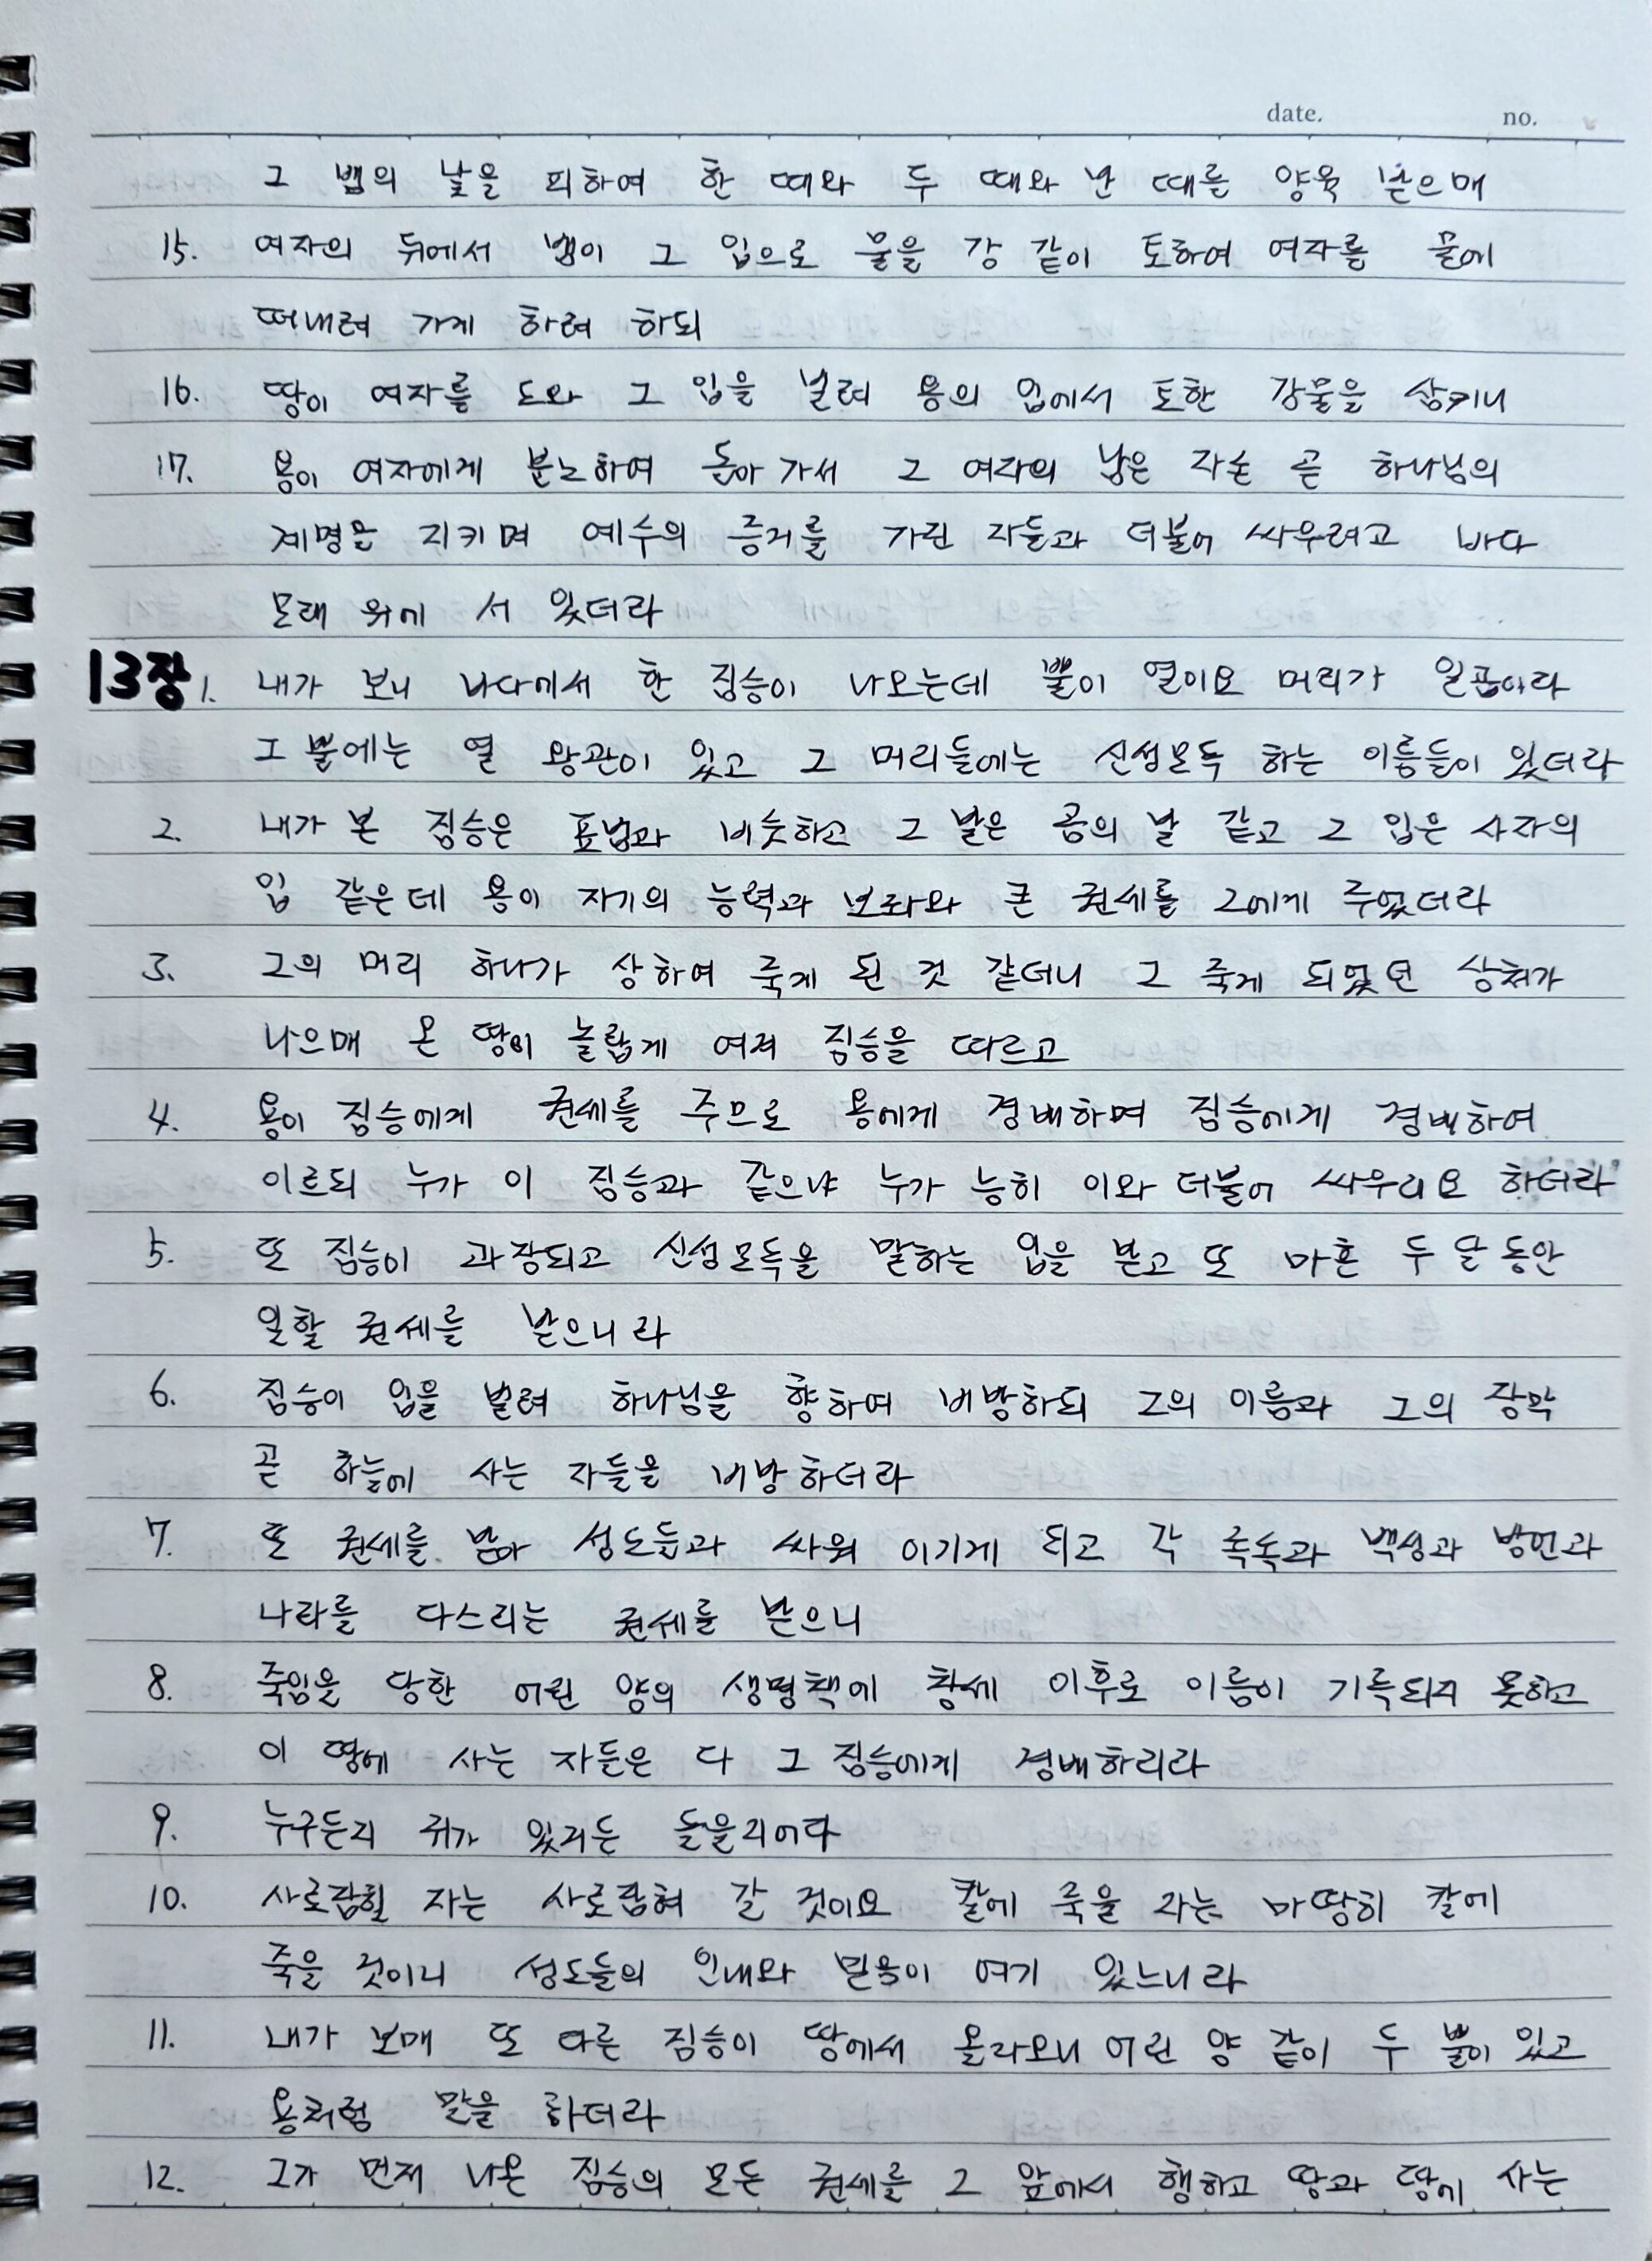 date. no.
그 뱀의 낯을 피하여 한 때와 두 때와 반 때를 양육 받으매
15. 여자의 뒤에서 뱀이 그 입으로 물을 강 같이 토하여 여자를 물에
떠내려 가게 하려 하되
16. 땅이 여자를 도와 그 입을 벌려 용의 입에서 토한 강물을 삼키니
17. 용이 여자에게 분노하여 돌아 가서 그 여자의 남은 자손 곧 하나님의
계명을 지키며 예수의 증거를 가진 자들과 더불어 싸우려고 바다
모래 위에 서 있더라
13장 1. 내가 보니 바다에서 한 짐승이 나오는데 뿔이 열이요 머리가 일곱이라
그 뿔에는 열 왕관이 있고 그 머리들에는 신성모독 하는 이름들이 있더라
2. 내가 본 짐승은 표범과 비슷하고 그 발은 곰의 발 같고 그 입은 사자의
입 같은데 용이 자기의 능력과 보좌와 큰 권세를 그에게 주었더라
3. 그의 머리 하나가 상하여 죽게 된 것 같더니 그 죽게 되었던 상처가
나으매 온 땅이 놀랍게 여겨 짐승을 따르고
4. 용이 짐승에게 권세를 주므로 용에게 경배하며 짐승에게 경배하여
이르되 누가 이 짐승과 같으냐 누가 능히 이와 더불어 싸우리요 하더라
5. 또 짐승이 과장되고 신성모독을 말하는 입을 받고 또 마흔 두 달 동안
일할 권세를 받으니라
6. 짐승이 입을 벌려 하나님을 향하여 비방하되 그의 이름과 그의 장막
곧 하늘에 사는 자들을 비방하더라
7. 또 권세를 받아 성도들과 싸워 이기게 되고 각 족속과 백성과 방언과
나라를 다스리는 권세를 받으니
8. 죽임을 당한 어린 양의 생명책에 창세 이후로 이름이 기록되지 못하고
이 땅에 사는 자들은 다 그 짐승에게 경배하리라
9. 누구든지 귀가 있거든 들을지어다
10. 사로잡힐 자는 사로잡혀 갈 것이요 칼에 죽을 자는 마땅히 칼에
죽을 것이니 성도들의 인내와 믿음이 여기 있느니라
11. 내가 보매 또 다른 짐승이 땅에서 올라오니 어린 양 같이 두 뿔이 있고
용처럼 말을 하더라
12. 그가 먼저 나온 짐승의 모든 권세를 그 앞에서 행하고 땅과 땅에 사는